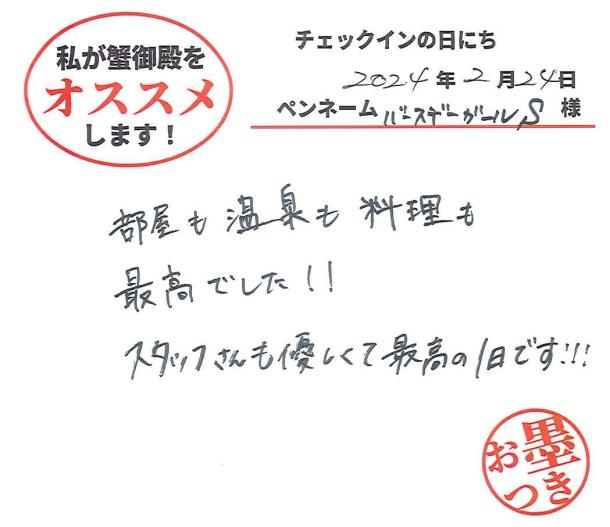 私が蟹御殿を
オススメ
します！
チェックインの日にち
2024年2月24日
ペンネーム バースデーガールS 様
部屋も温泉も料理も
最高でした！！
スタッフさんも優しくて最高の1日です!!!
お墨
つき